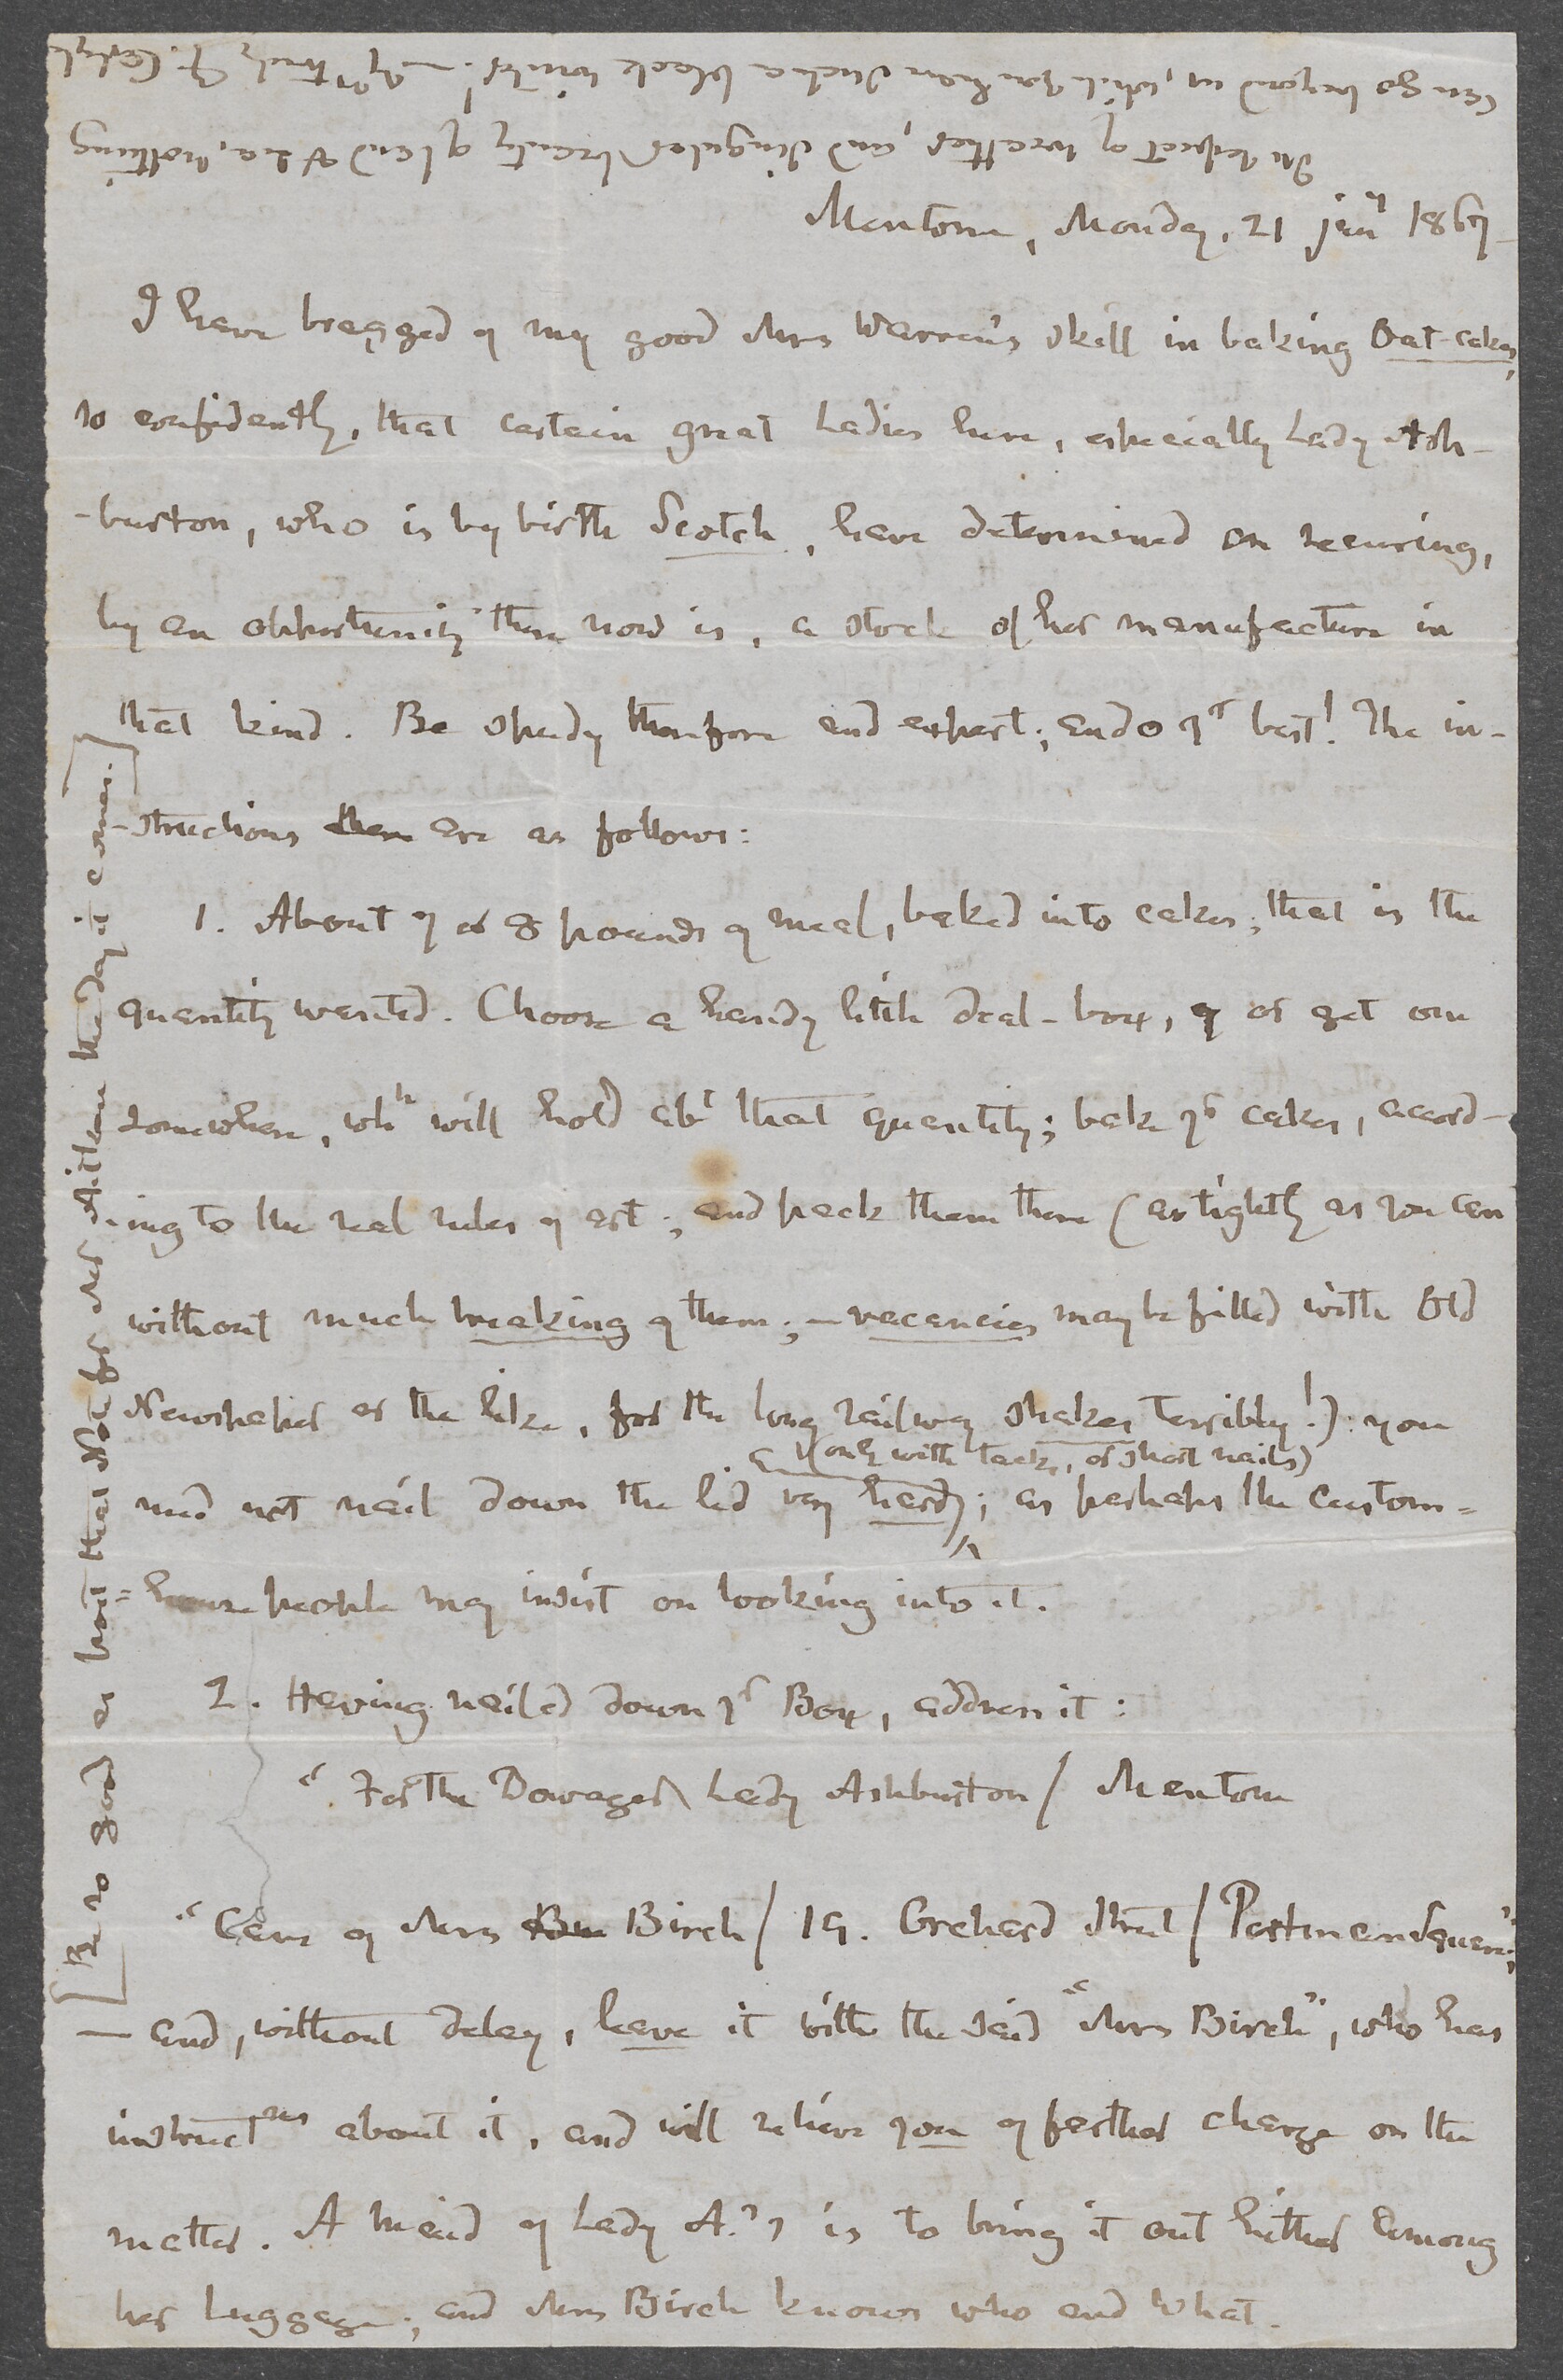 Mentone, Monday, 21 jany 1867 –
I have bragged of my good Mrs Warren's skill in baking Oat-cakes,
so confidently, that certain great Ladies here, especially Lady Ash-
-burton, who is by birth Scotch, have determined on securing,
by an opportunity there now is, a stock of her manufacture in
that kind. Be speedy therefore and expert; and do yr best! The in-
-structions them are as follows:
1. About 7 or 8 pounds of meal, baked into cakes; that is the
quantity wanted. Choose a handy little deal-box, or get one
somewhere, whh will hold abt that quantity; bake yr cakes, accord-
-ing to the real rules of art; and pack them there (as tightly as you can
without much breaking of them; – vacancies may be filled with Old
Newspaper or the like, for the long railway shakes terribly!): you
need not nail down the lid very hard;
(only with tacks, or short nails)
as perhaps the Custom=
=house people may insist on looking into it.
2. Having nailed down yr Box, address it:
"For the Dowager Lady Ashburton / Mentone
"Care of Mrs Bu Birch / 19. Orchard Street / Portman Square";
— and, without delay, leave it with the said "Mrs Birch", who has
instructns about it, and will relieve you of farther charge on the
matter. A maid of Lady A.'s is to bring it out hither among
her Luggage; and Mrs Birch knows who and what.
[Be so good as post that Note for Mrs Aitken the day it comes.]
In respect of weather, and singular beauty of land & sea, nothing
can go beyond us, while you have such a black winter! – Yrs truly T. Carlyle